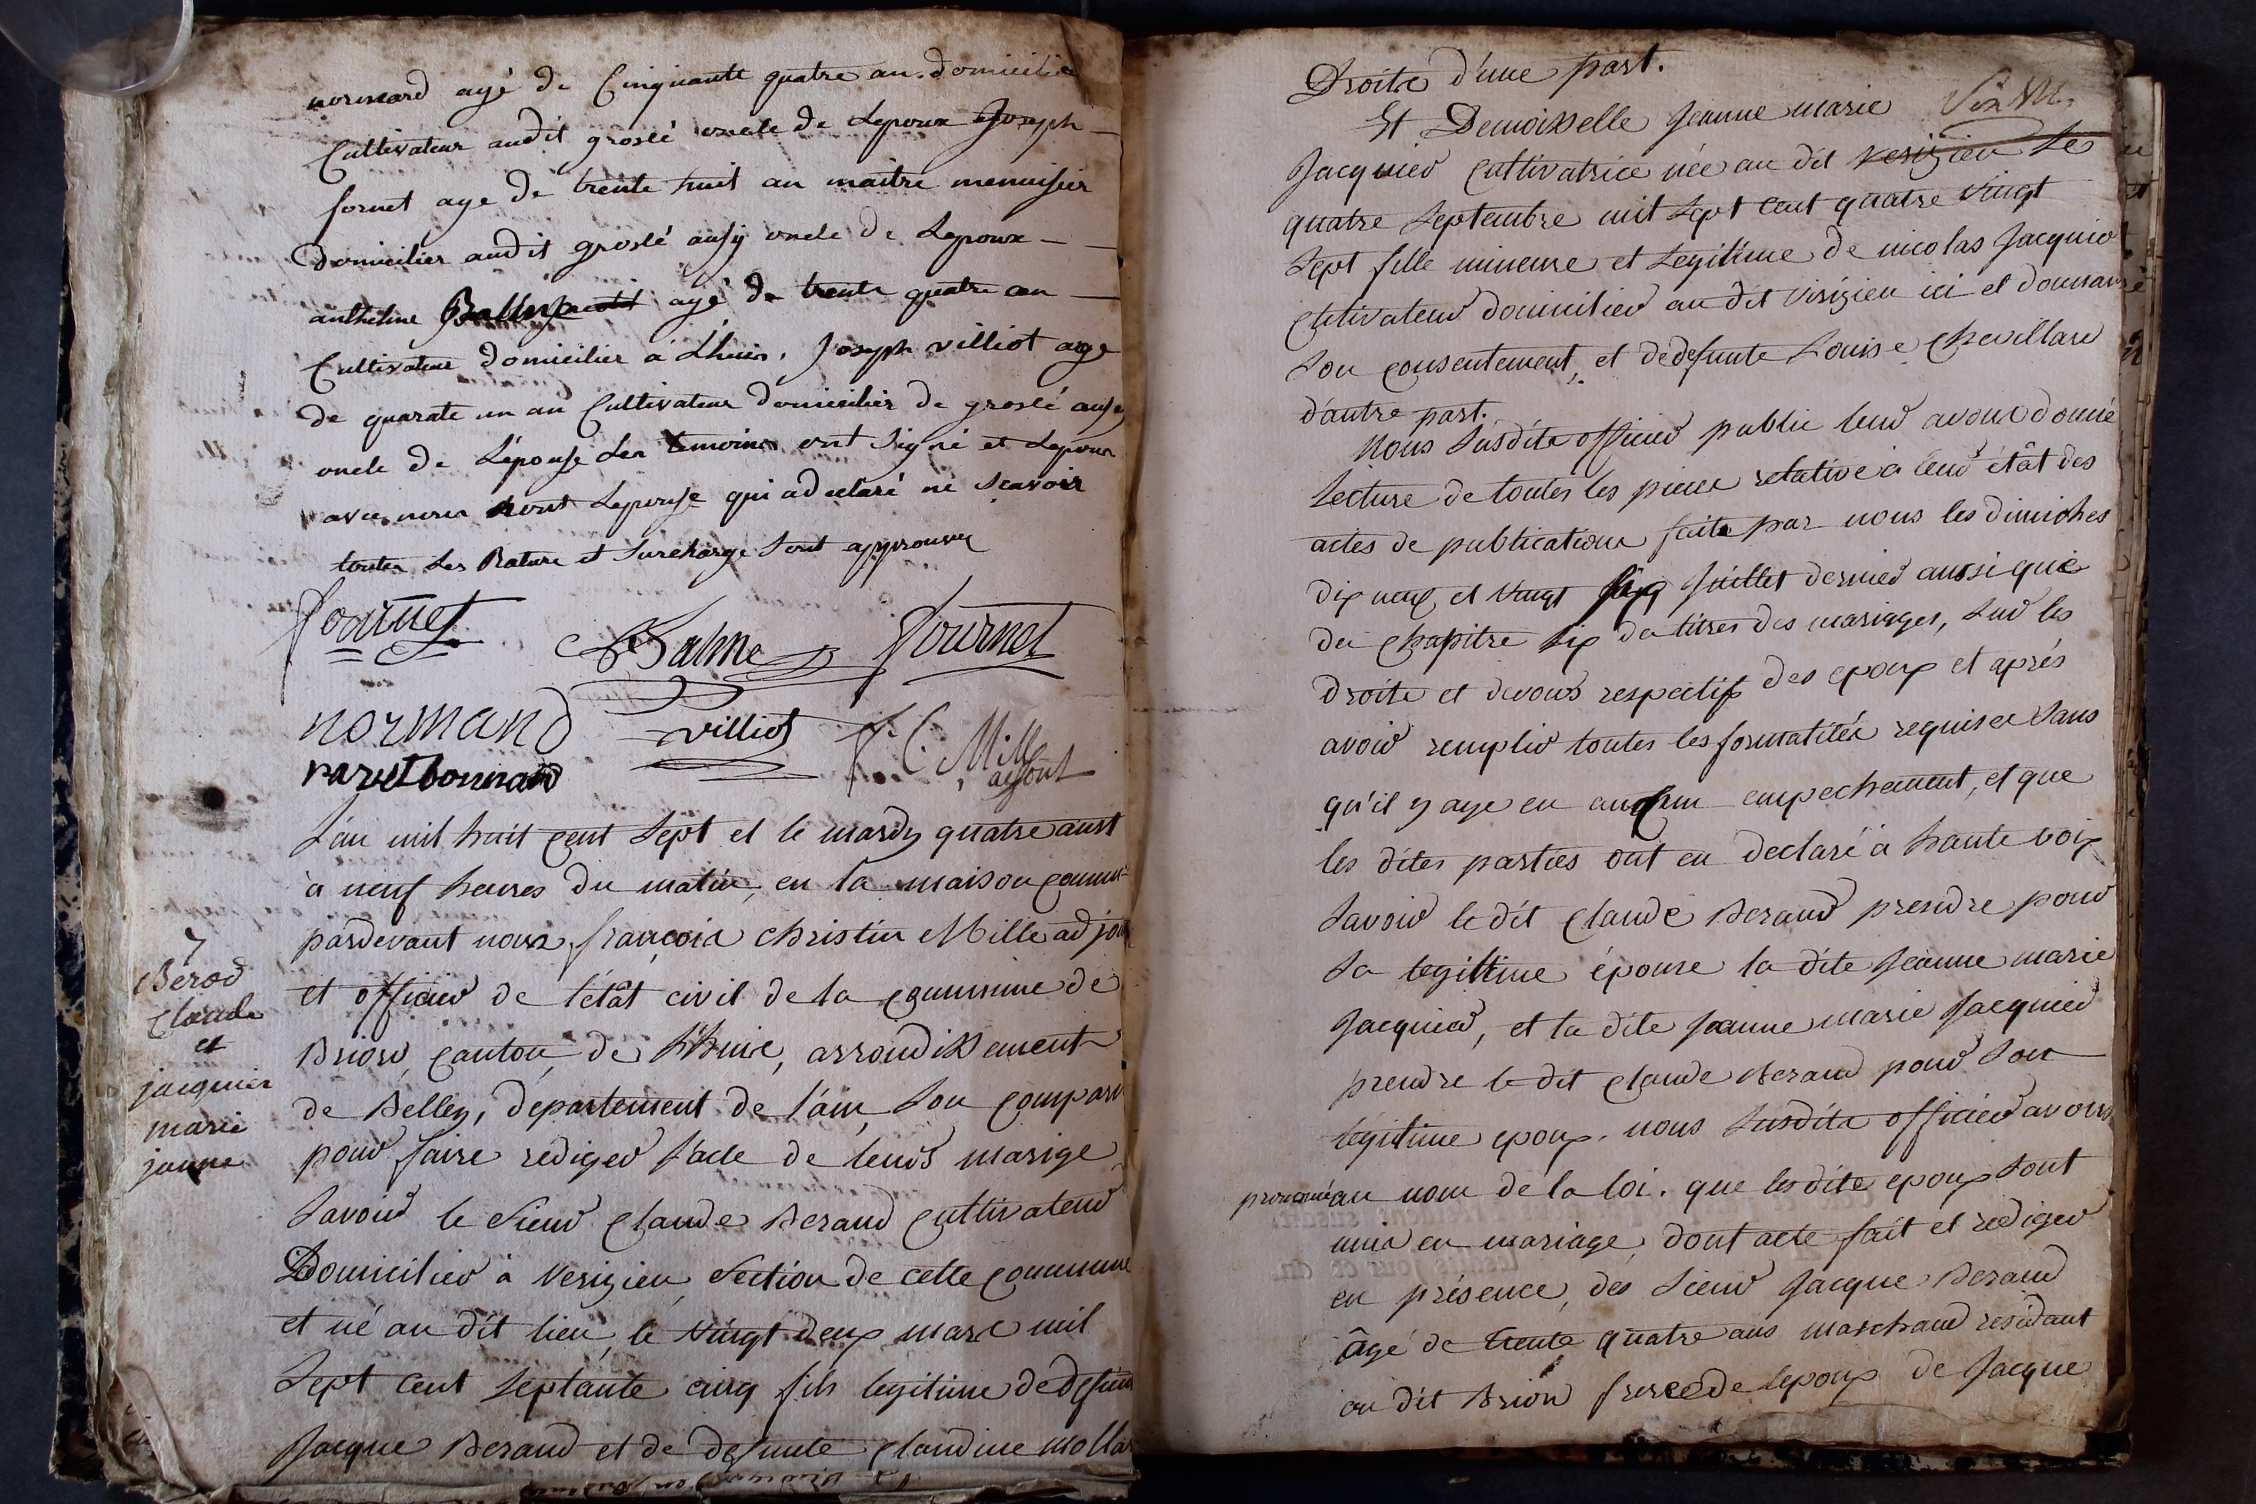 normand agé de Cinquante quatre an domicilié
Cultivateur audit groslé oncle de Lepoux Joseph
fornet age de trente huit an maitre menuisier
domicilier audit groslé ausy oncle de Lepoux
anthelme agé de trente quatre an
Cultivateur domicilier a Lhuis, Joseph villiot age
de quarate un an Cultivateur domicilier de groslé ausy
oncle de Lépouse Les temoins ont Signé et Lepoux
avec nous nont Lepouse qui a declaré ne Scavoir
toutes Les Rature et Surcharge Sont approuvez
fournet
Fournet
normand villiot F. C. Mille
adjoint
7
Berod
Claude
et
jacquier
marie
janne
L'an mil huit cent Sept et le mardy quatre aust
a neuf heures du matin, en la maison commu
pardevant nous françois christin Mille adjoin
et officier de l'étât civil de la commune de
Briord, canton, de L'huis, arrondissement
de Belley, departement de l'ain, Son compari
pour faire rediger l'acte de leurs marige
Savoir le Sieur Claude Beraud Cultivateur
Domicilier à Verizieu, Section de cette commune
et né au dit lieu, le vingt deux mars mil
Sept cent Septante cinq fils legitime de defunt
Jacque Beraud et de defunte Claudine molla
Droite d'une part.
Et Demoisselle Jeanne marie
Jacquier cultivatrice née au dit verizieu Le
quatre Septembre mil Sept cent quatre vingt
Sept fille mineure et Legitime de nicolas Jacquier
Cultivateur domicilier au dit Virizieu ici et donnant
Son consentement, et de defunte Louise Chevillard
d'autre part.
Nous Susdits officier public leur avons donné
Lecture de toutes les pieces relative à leur étât des
actes de publications faite par nous les dimiches
dix neuf et vingt six Juillet dernier aussi que
du chapitre six du titres des mariages, Sur les
droite et devours respectifs des epoux et après
avoir remplir toutes les formalités requises Sans
qu'il y aye eu aucun empechement, et que
les dites parties ont eu declaré à haute voix
Savoir le dit Claude Beraud prendre pour
Sa legitime épouse la dite Jeanne marie
Jacquier, et la dite Jeanne marie Jacquier
prendre le dit Claude Beraud pour Son
légitime epoux. nous Susdits officier avons
prononcé au nom de la loi. que les dits epoux Sont
unis en mariage, dont acte fait et rediger
en présence, des Sieur Jacque Beraud
âgé de trente quatre ans marchand residant
au dit Brion frere de lepoux de Jacque